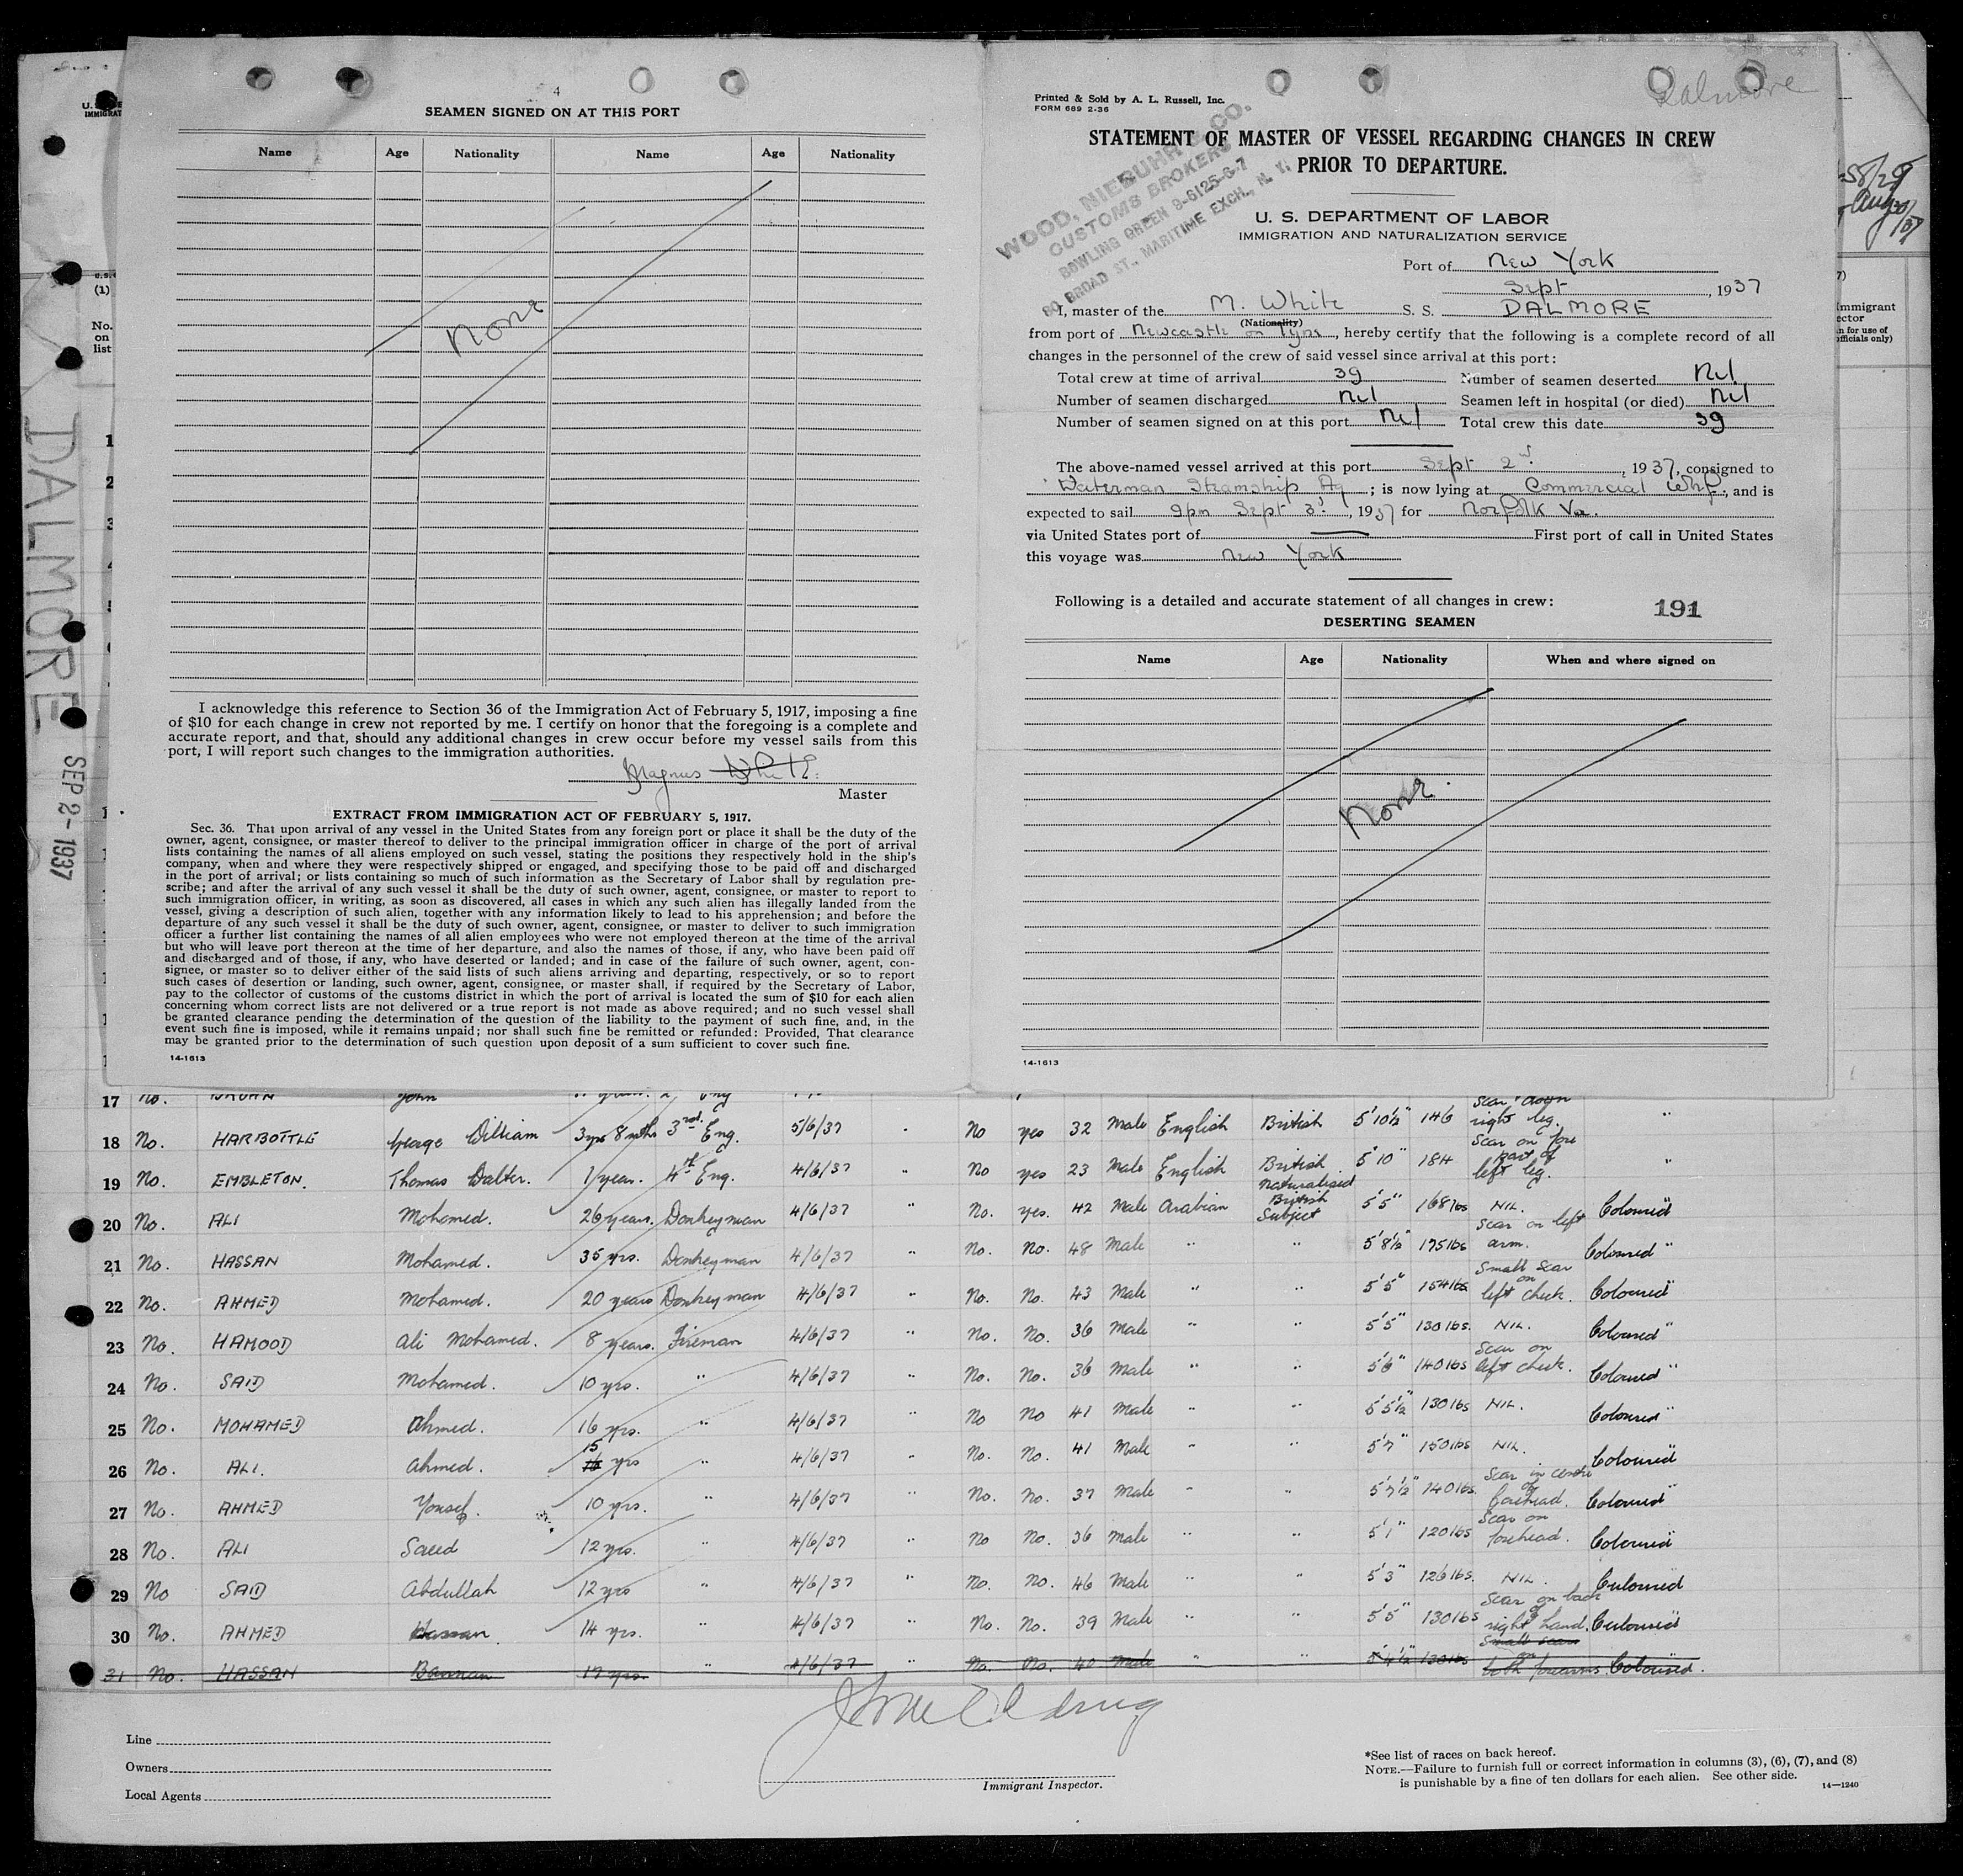 4
SEAMEN SIGNED ON AT THIS PORT
Name Age Nationality Name Age Nationality
None
I acknowledge this reference to Section 36 of the Immigration Act of February 5, 1917, imposing a fine
of $10 for each change in crew not reported by me. I certify on honor that the foregoing is a complete and
accurate report, and that, should any additional changes in crew occur before my vessel sails from this
port, I will report such changes to the immigration authorities.
Magnus White
Master
EXTRACT FROM IMMIGRATION ACT OF FEBRUARY 5, 1917.
Sec. 36. That upon arrival of any vessel in the United States from any foreign port or place it shall be the duty of the
owner, agent, consignee, or master thereof to deliver to the principal immigration officer in charge of the port of arrival
lists containing the names of all aliens employed on such vessel, stating the positions they respectively hold in the ship's
company, when and where they were respectively shipped or engaged, and specifying those to be paid off and discharged
in the port of arrival; or lists containing so much of such information as the Secretary of Labor shall by regulation pre-
scribe; and after the arrival of any such vessel it shall be the duty of such owner, agent, consignee, or master to report to
such immigration officer, in writing, as soon as discovered, all cases in which any such alien has illegally landed from the
vessel, giving a description of such alien, together with any information likely to lead to his apprehension; and before the
departure of any such vessel it shall be the duty of such owner, agent, consignee, or master to deliver to such immigration
officer a further list containing the names of all alien employees who were not employed thereon at the time of the arrival
but who will leave port thereon at the time of her departure, and also the names of those, if any, who have been paid off
and discharged and of those, if any, who have deserted or landed; and in case of the failure of such owner, agent, con-
signee, or master so to deliver either of the said lists of such aliens arriving and departing, respectively, or so to report
such cases of desertion or landing, such owner, agent, consignee, or master shall, if required by the Secretary of Labor,
pay to the collector of customs of the customs district in which the port of arrival is located the sum of $10 for each alien
concerning whom correct lists are not delivered or a true report is not made as above required; and no such vessel shall
be granted clearance pending the determination of the question of the liability to the payment of such fine, and, in the
event such fine is imposed, while it remains unpaid; nor shall such fine be remitted or refunded: Provided, That clearance
may be granted prior to the determination of such question upon deposit of a sum sufficient to cover such fine.
14-1613
Dalmore
Printed & Sold by A. L. Russell, Inc.
FORM 689 2-36
STATEMENT OF MASTER OF VESSEL REGARDING CHANGES IN CREW
PRIOR TO DEPARTURE.
WOOD, NIEBUHR & CO.
CUSTOMS BROKERS
BOWLING GREEN 9-6125-6-7
80 BROAD ST., MARITIME EXCH., N. Y.
U. S. DEPARTMENT OF LABOR
IMMIGRATION AND NATURALIZATION SERVICE
Port of New York
Sept , 1937
I, master of the M. White S. S. DALMORE
(Nationality)
from port of Newcastle on Tyne, hereby certify that the following is a complete record of all
changes in the personnel of the crew of said vessel since arrival at this port:
Total crew at time of arrival 39 Number of seamen deserted Nil
Number of seamen discharged Nil Seamen left in hospital (or died) Nil
Number of seamen signed on at this port Nil Total crew this date 39
The above-named vessel arrived at this port Sept 2nd, 1937, consigned to
Waterman Steamship Ag; is now lying at Commercial Whf, and is
expected to sail 9pm Sept 3d, 1937 for Norfolk Va.
via United States port of — First port of call in United States
this voyage was New York
Following is a detailed and accurate statement of all changes in crew:
191
DESERTING SEAMEN
Name Age Nationality When and where signed on
None.
14-1613
DALMORE
SEP 2 - 1937
(1)
No.
on
list
17 No. John
18 No. HARBOTTLE George William 3yrs 8mths 3rd Eng. 5/6/37 " No yes 32 Male English British 5'10½" 146 Scar down right leg. "
19 No. EMBLETON. Thomas Walter. 1 year. 4th Eng. 4/6/37 " No yes 23 Male English British 5'10" 184 Scar on fore part of left leg. "
20 No. ALI Mohamed. 26 years. Donkeyman 4/6/37 " No. yes. 42 Male Arabian Naturalised British Subject 5'5" 168lbs NIL. Coloured "
21 No. HASSAN Mohamed. 35 yrs. Donkeyman 4/6/37 " No. No. 48 Male " " 5'8½" 175lbs Scar on left arm. Coloured "
22 No. AHMED Mohamed. 20 years Donkeyman 4/6/37 " No. No. 43 Male " " 5'5" 154lbs Small scar on left cheek. Coloured "
23 No. HAMOOD Ali Mohamed. 8 years. Fireman 4/6/37 " No. No. 36 Male " " 5'5" 130lbs. NIL. Coloured "
24 No. SAID Mohamed. 10 yrs. " 4/6/37 " No. No. 36 Male " " 5'6" 140lbs Scar on left cheek. Coloured "
25 No. MOHAMED Ahmed. 16 yrs. " 4/6/37 " No No 41 Male " " 5'5½" 130lbs NIL. Coloured "
26 No. ALI. Ahmed. 15 yrs " 4/6/37 " No. No. 41 Male " " 5'7" 150lbs NIL. Coloured "
27 No. AHMED Yousef. 10 yrs. " 4/6/37 " No. No. 37 Male " " 5'7½" 140lbs. Scar in centre of forehead. Coloured "
28 No. ALI Saeed 12 yrs. " 4/6/37 " No No. 36 Male " " 5'1" 120lbs Scar on forehead. Coloured "
29 No SAID Abdullah 12 yrs " 4/6/37 " No. No. 46 Male " " 5'3" 126lbs. NIL. Coloured
30 No. AHMED Hassan. 14 yrs. " 4/6/37 " No. No. 39 Male " " 5'5" 130lbs Scar on back of right hand. Coloured "
31 No. HASSAN 17 yrs. " 4/6/37 " No. No. 40 Male " " 5'4½" 130lbs Small scar on both forearms. Coloured.
Line
Owners
Local Agents
Immigrant Inspector.
*See list of races on back hereof.
NOTE.—Failure to furnish full or correct information in columns (3), (6), (7), and (8)
is punishable by a fine of ten dollars for each alien. See other side.
14—1240